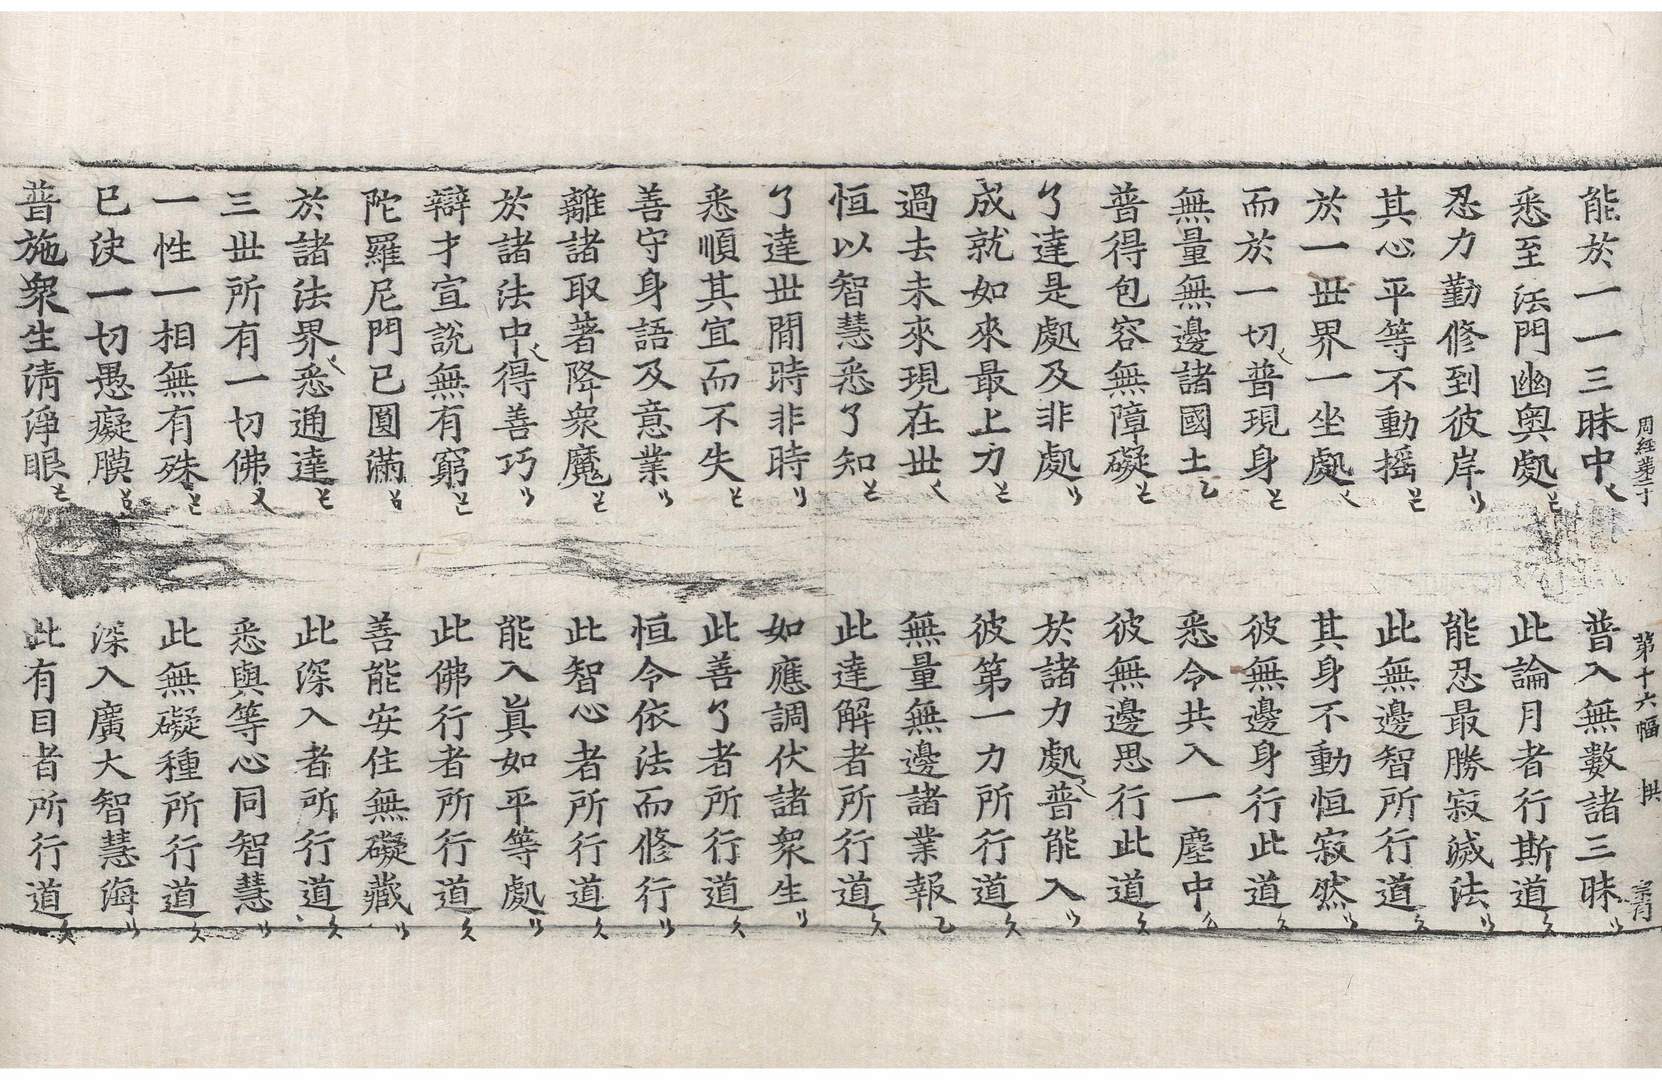 周經第二十 第十六幅 拱
能於一一三昧中 普入無數諸三昧
悉至法門幽奧處 此論月者行斯道
忍力勤修到彼岸 能忍最勝寂滅法
其心平等不動搖 此無邊智所行道
於一世界一坐處 其身不動恒寂然
而於一切普現身 彼無邊身行此道
無量無邊諸國土 悉令共入一塵中
普得包容無障礙 彼無邊思行此道
了達是處及非處 於諸力處普能入
成就如來最上力 彼第一力所行道
過去未來現在世 無量無邊諸業報
恒以智慧悉了知 此達解者所行道
了達世間時非時 如應調伏諸衆生
悉順其宜而不失 此善了者所行道
善守身語及意業 恒令依法而修行
離諸取著降衆魔 此智心者所行道
於諸法中得善巧 能入眞如平等處
辯才宣說無有窮 此佛行者所行道
陀羅尼門已圓滿 善能安住無礙藏
於諸法界悉通達 此深入者所行道
三世所有一切佛 悉與等心同智慧
一性一相無有殊 此無礙種所行道
已決一切愚癡膜 深入廣大智慧海
普施衆生清淨眼 此有目者所行道